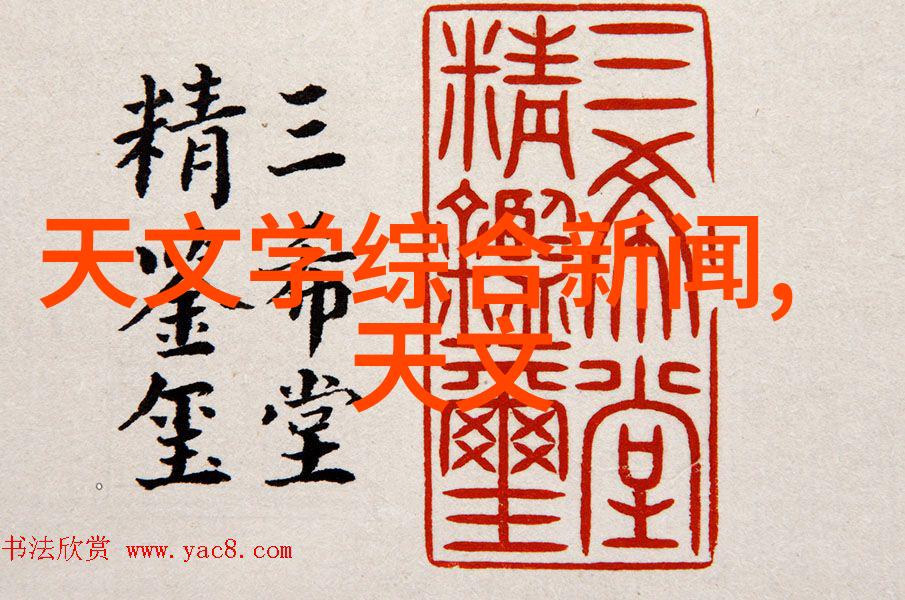 三希堂
精鉴玺
三希堂
精鑑璽
天文学综合新闻,
天文
书法欣赏 www.yac8.com